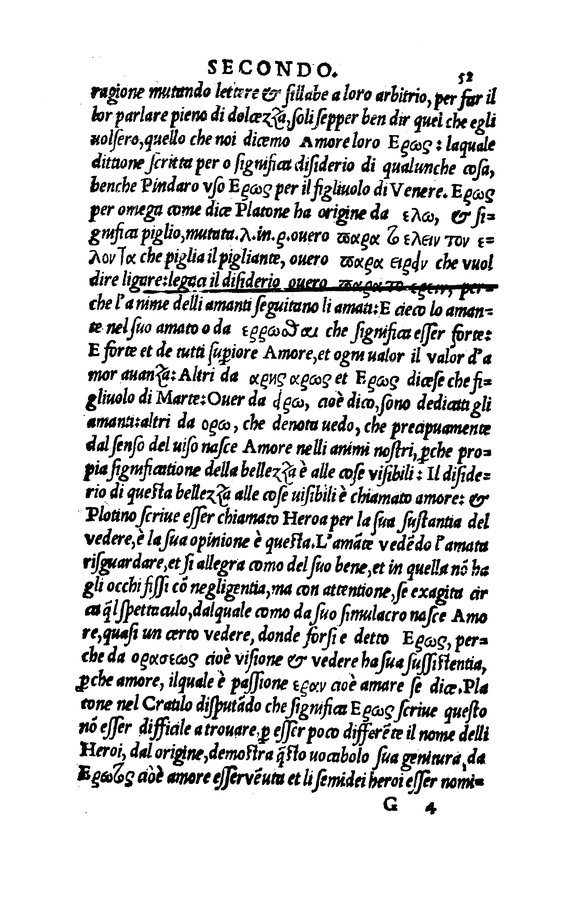 SECONDO. 52
ragione mutando lettere & sillabe a loro arbitrio, per far il
lor parlare pieno di dolcezza, soli sepper ben dir quel che egli
uolsero, quello che noi dicemo Amore loro Ερως: laquale
dittione scritta per o significa disiderio di qualunche cosa,
benche Pindaro vso Ερως per il figliuolo di Venere. Ερως
per omega come dice Platone ha origine da ελω, & si=
gnifica piglio, mutata .λ. in .ρ. ouero παρα το ελειν τον ε=
λοντα che piglia il pigliante, ouero παρα ειρειν che vuol
dire ligare: lega il disiderio ouero παρα το ερειν, per=
che l'anime delli amanti seguitano li amati: E cieco lo aman=
te nel suo amato o da ερρωσθαι che significa esser forte:
E forte et de tutti supiore Amore, et ogni ualor il valor d'a
mor auanza: Altri da αρης αρως et Ερως dicese che fi=
gliuolo di Marte: Ouer da ερω, cioè dico, sono dedicati gli
amanti: altri da ορω, che denota uedo, che precipuamente
dal senso del uiso nasce Amore nelli animi nostri, ꝑche pro=
pia significatione della bellezza è alle cose visibili: Il diside=
rio di questa bellezza alle cose uisibili è chiamato amore: &
Plotino scriue esser chiamato Heroa per la sua sustantia del
vedere, è la sua opinione è questa. L'amāte vedēdo l'amata
risguardare, et si allegra como del suo bene, et in quella nō ha
gli occhi fissi cō negligentia, ma con attentione, se exagita cir
ca q̄l spettaculo, dalquale como da suo simulacro nasce Amo
re, quasi un certo vedere, donde forsi e detto Ερως, per=
che da ορασεως cioè visione & vedere ha sua sussistentia,
ꝑche amore, ilquale è passione εραν cioè amare se dice. Pla
tone nel Cratilo disputādo che significa Ερως scriue questo
nō esser difficile a trouare, ꝑ esser poco differēte il nome delli
Heroi, dal origine, demostra q̄sto uocabolo sua genitura, da
Ερωτος cioè amore esser venuta et li semidei heroi esser nomi=
G 4